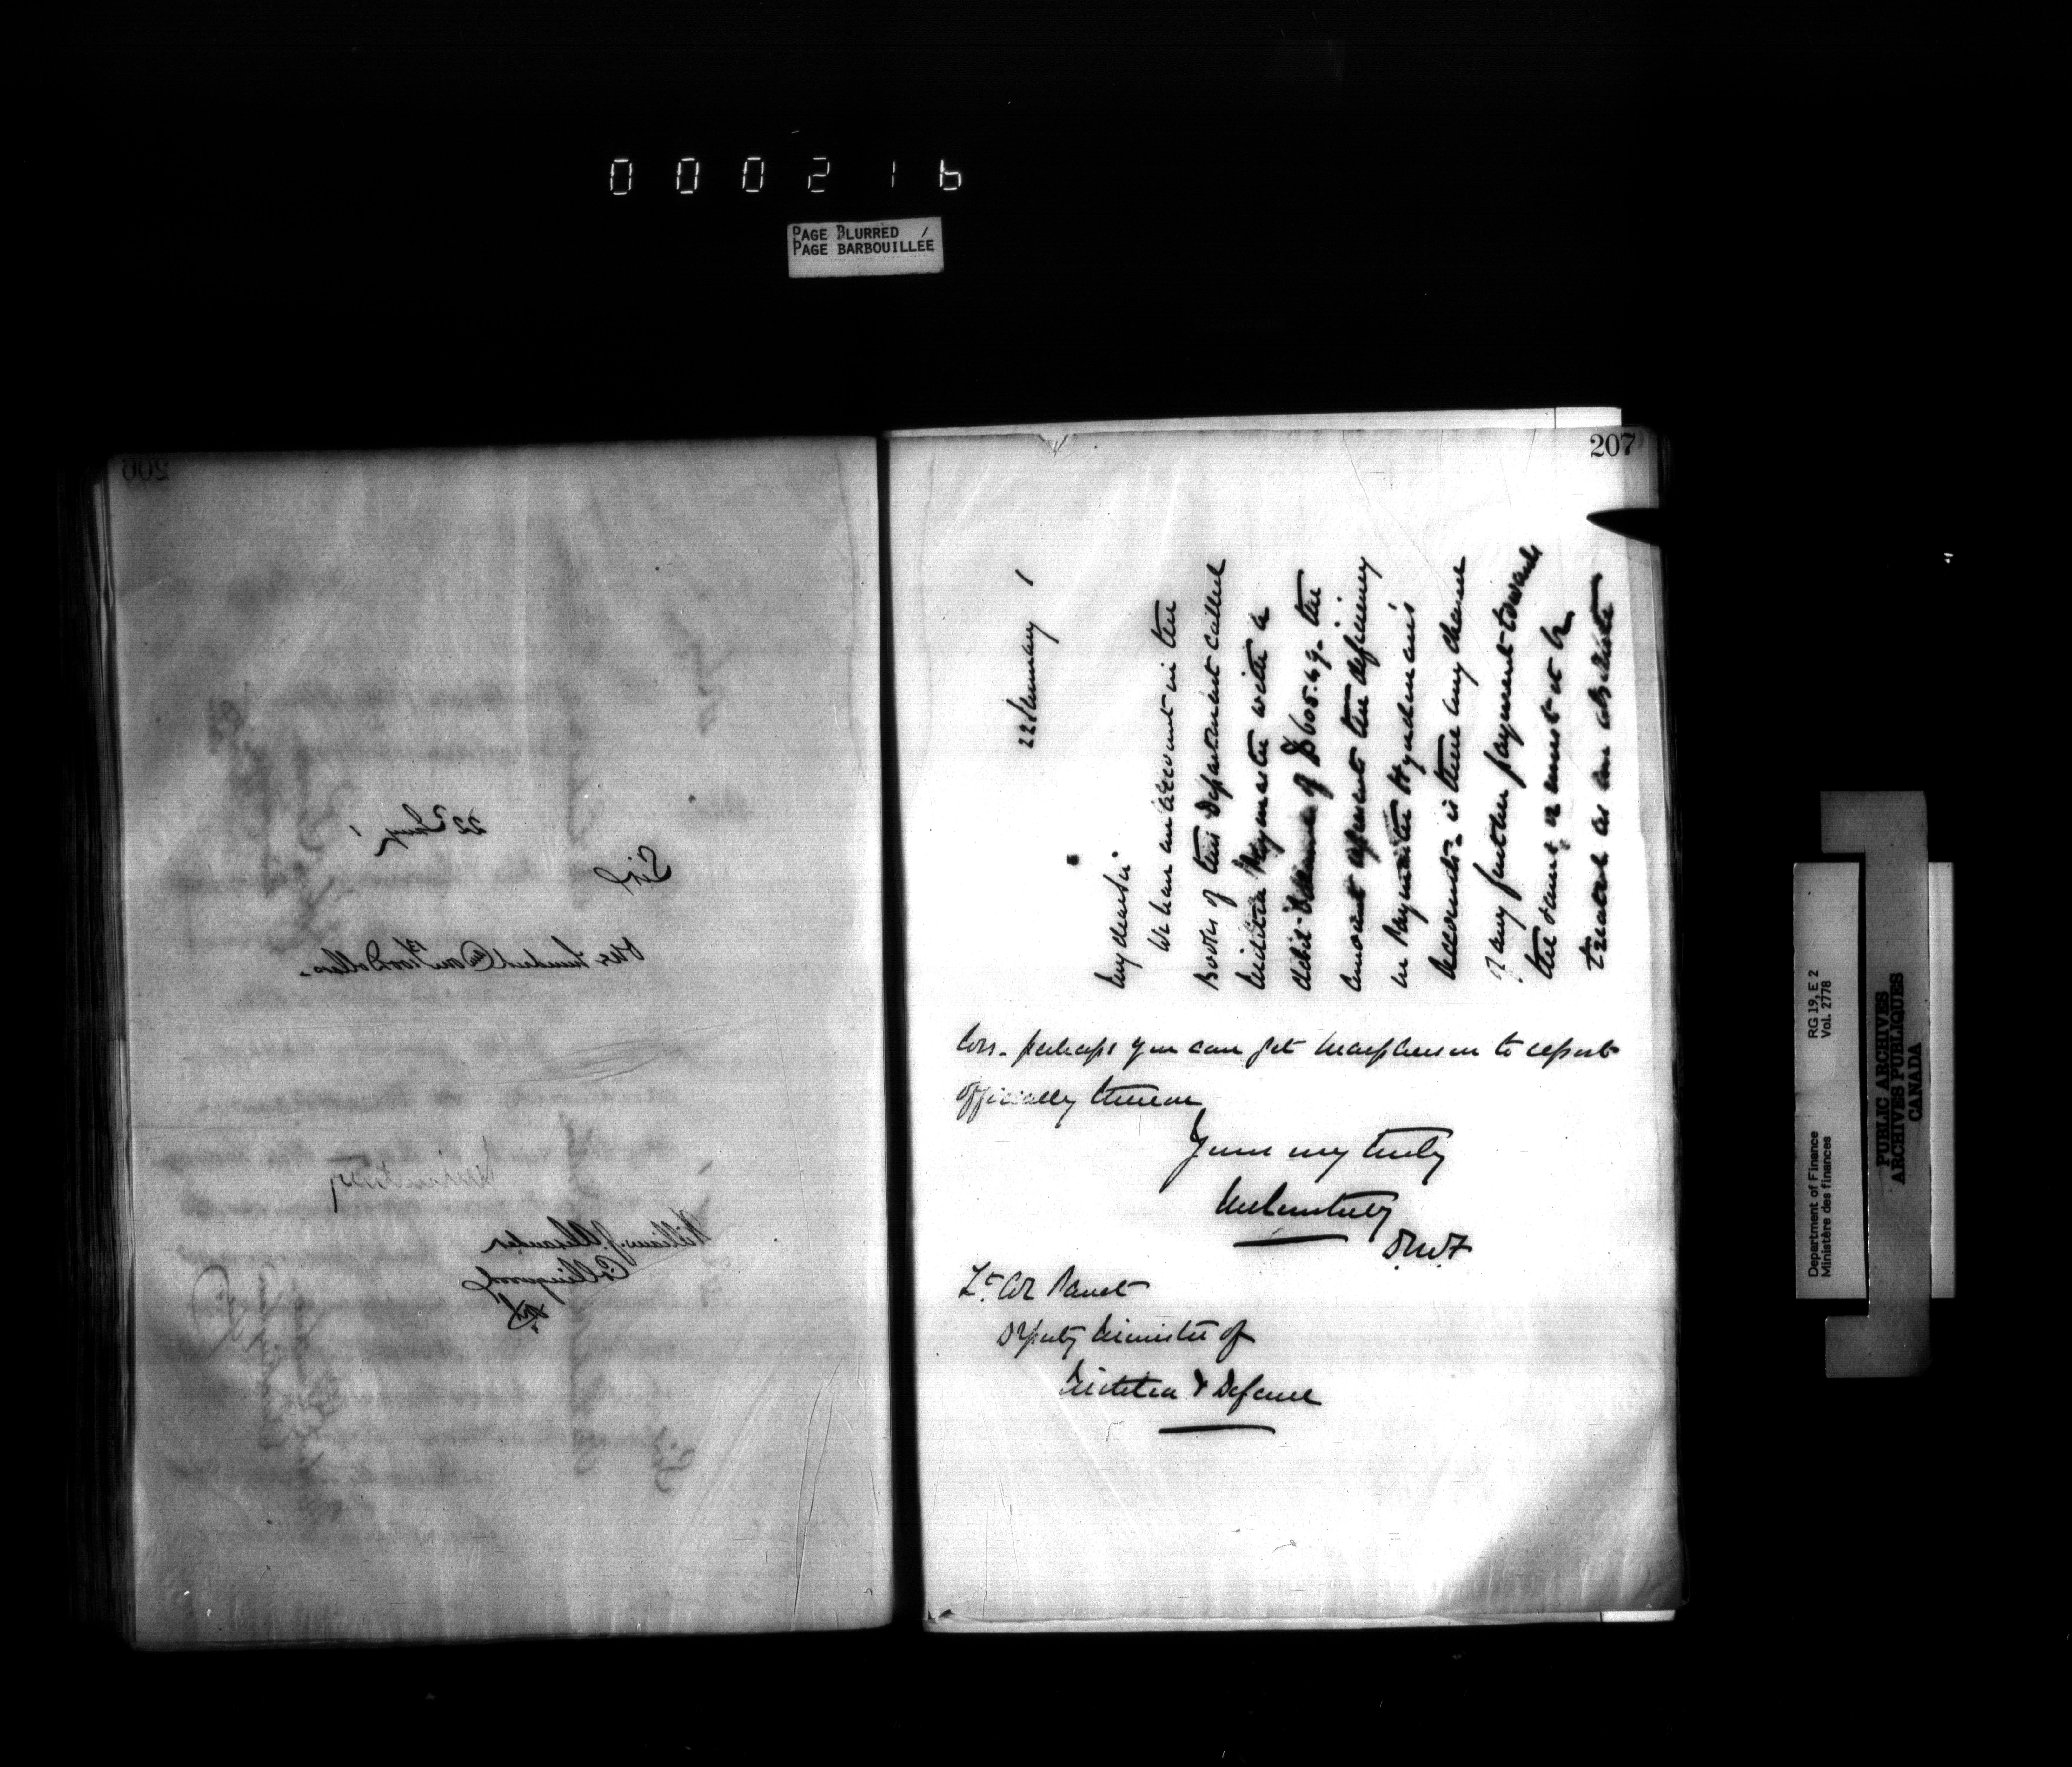 000216
PAGE BLURRED /
PAGE BARBOUILLEE
206
22 Jany 1
Sir
One hundred on /100 Dollars.
William J. Alexander
Collingwood
207
22 January 1
My dear Sir
We have an account in the
Books of this Department called
Militia Paymaster with a
debit Balance of $605.49. the
amount represents the deficiency
in Paymaster
accounts. is there any chance
of any further payment towards
the same, or must it be
treated as an absolute
loss. perhaps you can get Macpherson to report
officially thereon
Yours very truly
J M Courtney
D.M.F
Lt. Col Panet
Deputy Minister of
Militia & Defence
Department of Finance
Ministère des finances
RG 19, E 2
Vol. 2778
PUBLIC ARCHIVES
ARCHIVES PUBLIQUES
CANADA